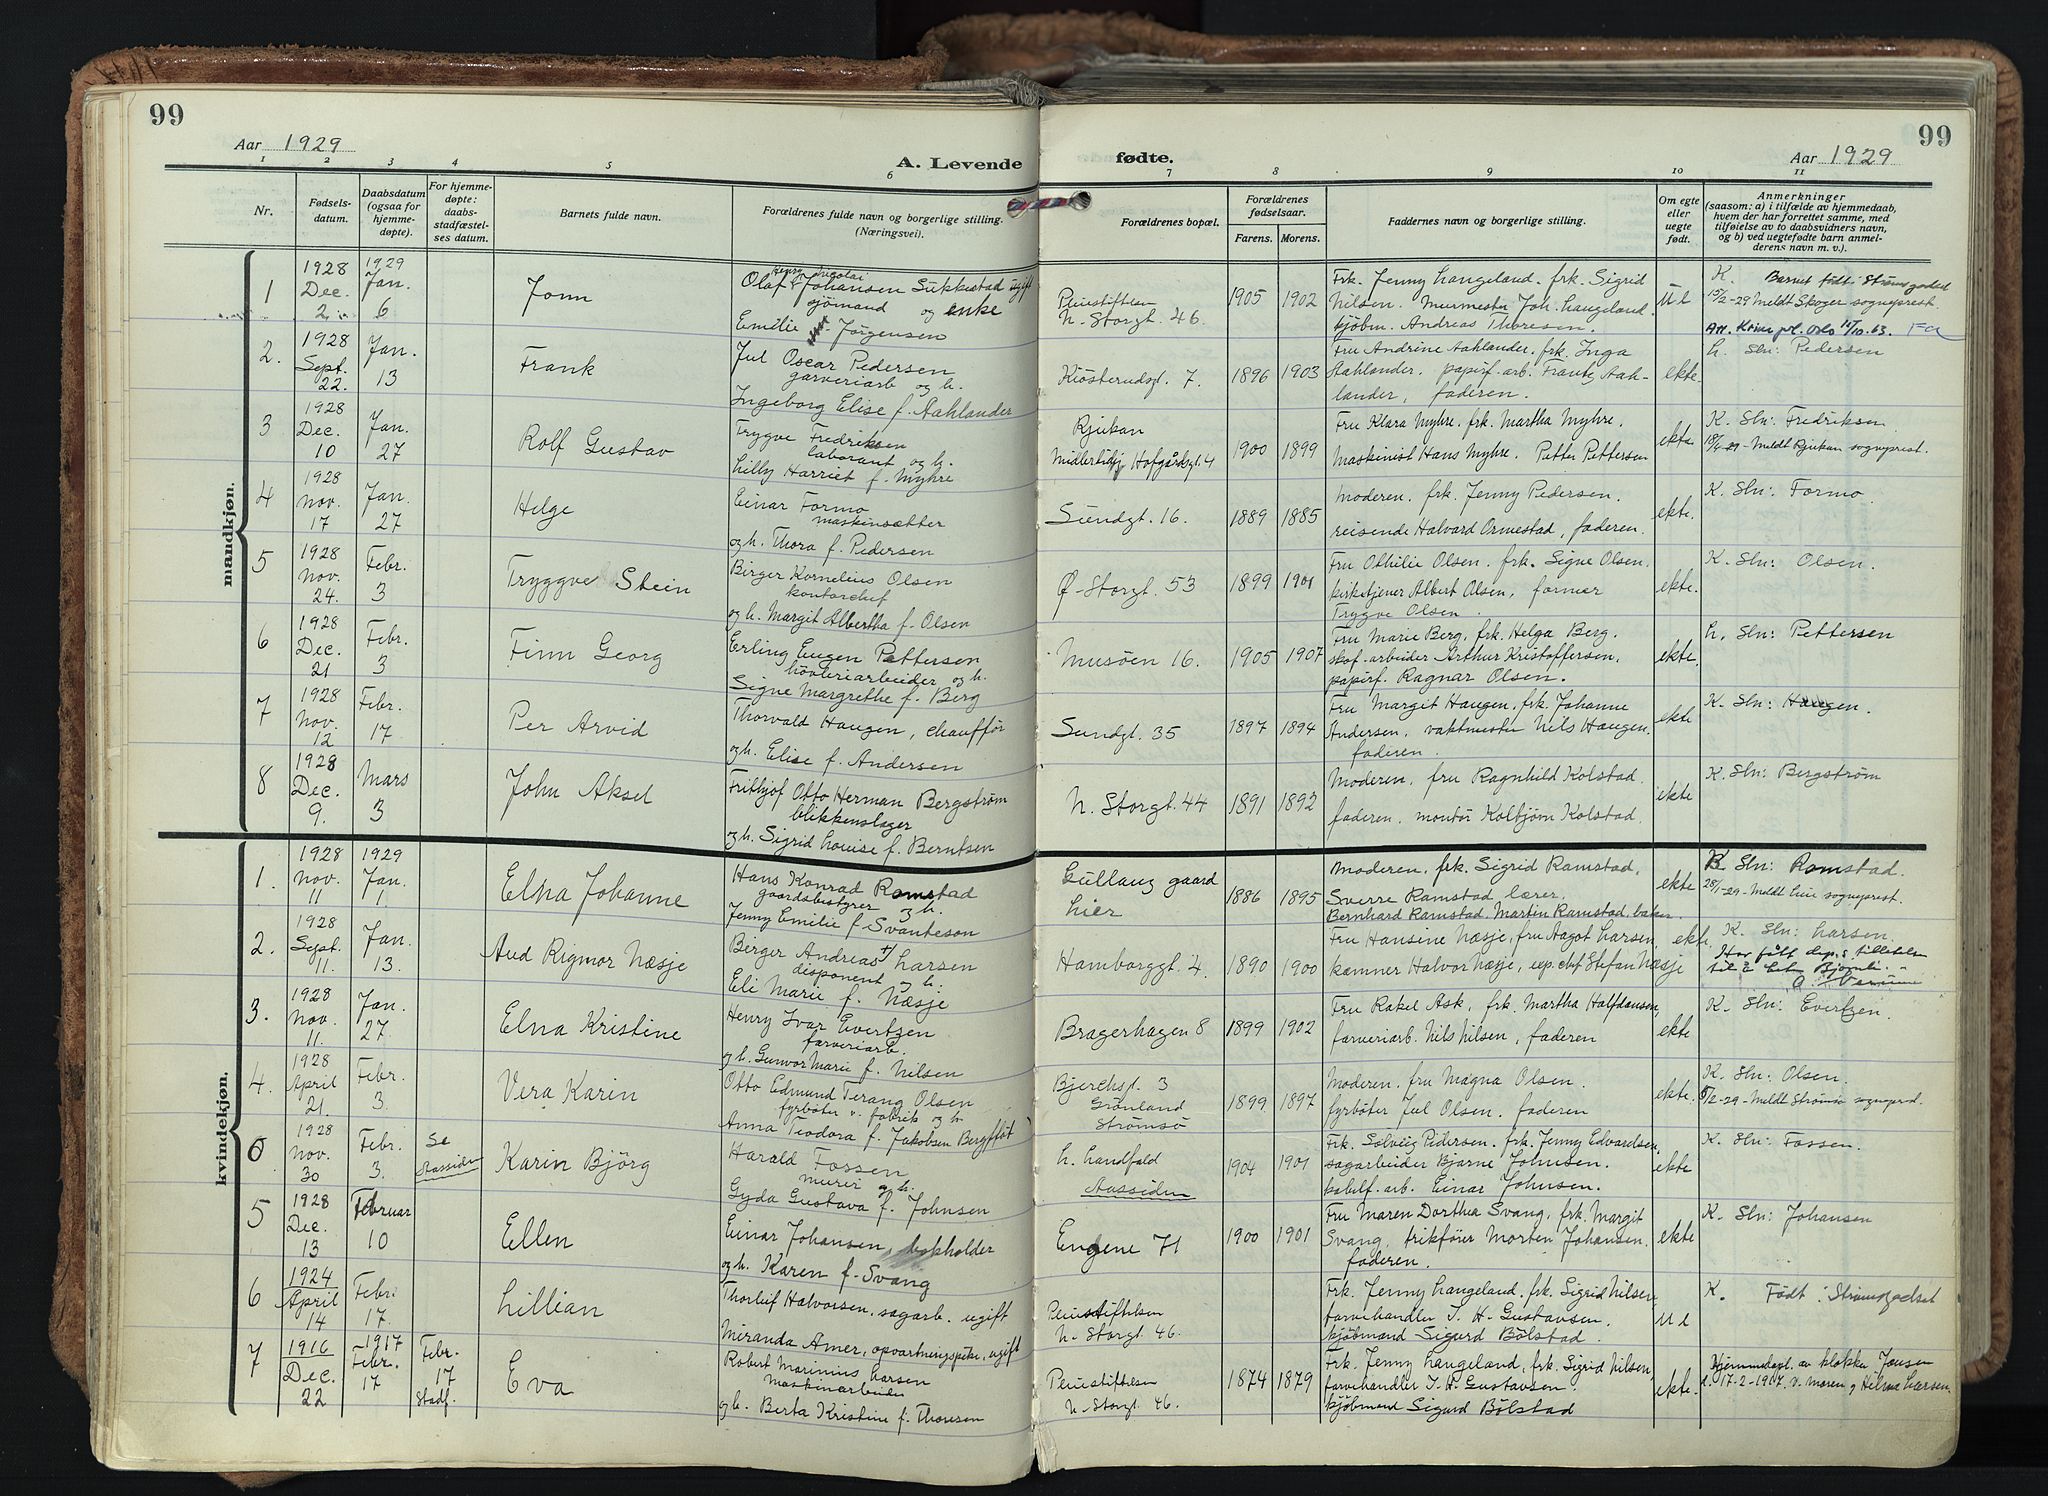 99
Aar 1929
A. Levende
1 2 3 4 5 6
Nr.
Fødsels-
datum.
Daabsdatum
(ogsaa for
hjemme-
døpte).
For hjemme-
døpte:
daabs-
stadfæstel-
ses datum.
Barnets fulde navn.
Forældrenes fulde navn og borgerlige stilling.
(Næringsvei).
mandkjøn.
1
1928
Dec.
2
1929
Jan.
6
Jonn
Henry Nicolai
Olaf Johansen Sukkestad ugift
sjömand og enke
Emilie Jørgensen
2.
1928
Sept.
22.
Jan.
13
Frank
Jul Oscar Pedersen
garveriarb og h.
Ingeborg Elise f. Aahlander
3
1928
Dec.
10
Jan.
27
Rolf Gustav
Trygve Fredriksen
laborant og h.
Lilly Harriet f. Myhre
4
1928
Nov.
17
Jan.
27
Helge
Einar Formo
maskinsætter
og h. Thora f. Pedersen
5
1928
Nov.
24.
Febr.
3
Tryggve Stein
Birger Kornelius Olsen
kontorchef
og h. Margit Albertha f. Olsen
6
1928
Dec.
21
Febr.
3
Finn Georg
Erling Eugen Pettersen
hövleriarbeider og h.
Signe Margrethe f. Berg
7
1928
Nov.
12
Febr.
17
Per Arvid
Thorvald Haugen, chaufför
og h. Elise f. Andersen
8
1928
Dec.
9.
Mars
3
John Aksel
Frithjof Otto Herman Bergstrøm
blikkenslager
og h. Sigrid Louise f. Berntsen
kvindekjøn.
1.
1928
Nov.
11
1929
Jan.
1
Elna Johanne
Hans Konrad Ramstad
gaardsbestyrer og h.
Jenny Emilie f. Svanteson
2.
1928
Sept.
11.
Jan.
13.
Aud Rigmor Næsje
Berger Andreas Larsen
disponent og h.
Eli Marie f. Næsje
3.
1928
Nov.
11.
Jan.
27.
Elna Kristine
Henry Ivar Evertzen
farveriarb.
og h. Gunvor Marie f. Nilsen
4.
1928
April
21.
Febr.
3.
Vera Karin
Otto Edmund Terang Olsen
fyrbøter v. fabrik og h.
Anna Teodora f. Jakobsen Bergfløt
0
1928
Nov.
30
Febr.
3.
Se
Aassiden
Karin Björg
Harald Fossen
murer og h.
Gyda Gustava f. Johnsen
5
1928
Dec.
13
Februar
10
Ellen
Einar Johansen, bokholder
og h. Karen f. Svang
6
1924
April
14
Febr.
17.
Lillian
Thorleif Halvorsen, sagarb. ugift
Miranda Amer, opvartningspike, ugift
7
1916
Dec.
22
1917
Febr.
17
Febr.
17
Stadf.
Eva
Robert Marinius Larsen
maskinarbeider
og h. Berta Kristine f. Thoresen
99
Aar 1929
fødte.
7 8 9 10 11
Forældrenes bopæl.
Forældrenes
fødselsaar.
Farens. Morens.
Faddernes navn og borgerlige stilling.
Om egte
eller
uegte
født.
Anmerkninger
(saasom: a) i tilfælde av hjemmedaab,
hvem der har forrettet samme, med
tilføielse av to daabsvidners navn,
og b) ved uegtefødte barn anmel-
derens navn m. v.).
Pleiestiftelsen
N. Storgt. 46.
1905 1902
Frk. Jenny Langeland. frk. Sigrid
Nilsen. Murmester Joh. Langeland
kjöbm. Andreas Thoresen.
U e
K. Barnet född: Strømsgodset
15/2-29 Meldt Skoger sogneprest.
Att. Krim. pol. Oslo 15/10.63.
Kiösterudgt. 7.
1896 1903
Fru Andrine Aahlander. frk. Inga
Aahlander, papirf. arb. Frantz Aah-
lander, faderen.
ekte.
L. Sln: Pedersen
Rjukan
Midlertidig Hofgårdsgt. 4
1900 1899
Fru Klara Myhre. frk. Martha Myhre.
Maskinist Hans Myhre. Petter Pettersen
ekte
K. Sln: Fredriksen
18/4-29 - Meldt Rjukan sogneprest.
Sundgt. 16.
1889 1885
Moderen. frk. Jenny Pedersen.
reisende Halvard Ormestad, faderen.
ekte.
K. Sln: Formo
Ø. Storgt. 53
1899 1901
Fru Othilie Olsen. frk. Signe Olsen.
kirketjener Albert Olsen, former
Trygve Olsen.
ekte.
K. Sln: Olsen.
Musöen 16.
1905 1907
Fru Marie Berg, frk. Helga Berg.
skof.-arbeider Arthur Kristoffersen,
papirf. Ragnar Olsen.
ekte.
L. Sln: Pettersen
Sundgt. 35
1897 1894
Fru Margit Haugen, frk. Johanne
Andersen, vaktmester Nils Haugen.
faderen.
ekte
K. Sln: Haugen.
N. Storgt. 44
1891 1892
Moderen, fru Ragnhild Kolstad.
faderen. montör Kolbjørn Kolstad.
ekte
K. Sln: Bergstrøm
Gullaug gaard
Lier
1886 1895
Moderen, frk. Sigrid Ramstad,
Sverre Ramstad lærer.
Bernhard Ramstad. Martin Ramstad, baker.
ekte
K. Sln: Ramstad.
25/1-29 - Meldt Lier sogneprest.
Hamborggt. 4.
1890 1900
Fru Hansine Næsje, fru Aagot Larsen,
kæmner Halvor Næsje, exp. chef Stefan Næsje
ekte
K. Sln: Larsen.
Har fått dep.s tillatelse
Bragerhagen 8
1899 1902
Fru Rakel Ask, frk. Martha Halfdansen,
farveriarb. Nils Nilsen, faderen
ekte
K. Sln: Evertzen.
Bjerchsgt. 3
Grønland
Strømsø
1899 1897
Moderen. fru Magna Olsen.
fyrböter Jul Olsen. faderen
ekte.
K. Sln: Olsen.
/2-29 - Meldt Strømsø sogneprest.
N. Landfald
Aassiden
1904 1901
Frk. Solveig Pedersen. frk. Jenny Edvardsen,
sagarbeider Bjarne Johnsen.
kabelf. arb. Einar Johnsen.
ekte
K. Sln: Fossen.
Engene 71
1900 1901
Fru Maren Dorthea Svang, frk. Margit
Svang, trikförer Morten Johansen.
faderen.
ekte
K. Sln: Johansen
Pleiestiftelsen
N. Storgt. 46.
Frk. Jenny Langeland. frk. Sigrid Nilsen,
farvehandler T. H. Gustavsen.
kjöbmand Sigurd Bölstad.
U e
K. Født: Strømsgodset
Pleiestiftelsen
N. Storgt. 46.
1874 1879
Frk. Jenny Langeland, frk. Sigrid Nilsen,
farvehandler T. H. Gustavsen.
kjöbmand Sigurd Bölstad
ekte.
Hjemmedøpt av klokker Jensen
d. 17-2-1917. v. moren og Helma Larsen.